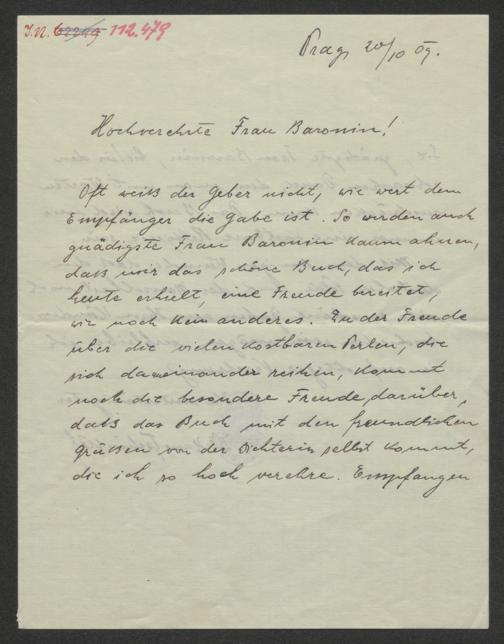 J.N. 112.479
Prag, 20/10 09.
Hochverehrte Frau Baronin!
Oft weiß der Geber nicht, wie wert dem
Empfänger die Gabe ist. So werden auch
gnädigste Frau Baronin kaum ahnen,
daß mir das schöne Buch, das ich
heute erhielt, eine Freude bereitet,
wie noch kein anderes. Zu der Freude
über die vielen kostbaren Perlen, die
sich da aneinander reihen, kommt
noch die besondere Freude darüber,
daß das Buch mit den freundlichen
Grüßen von der Dichterin selbst kommt,
die ich so hoch verehre. Empfangen